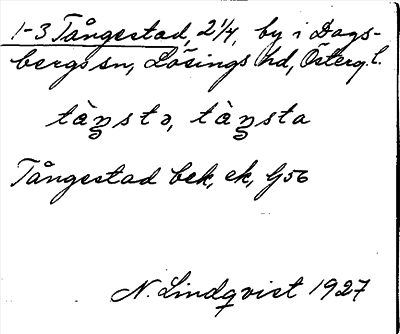 1-3 Tångestad, 2¼, by i Dags-
bergs sn, Lösings hd, Österg. l.
tàŋstə, tàŋsta
Tångestad bek, ek, G56
N. Lindqvist 1927